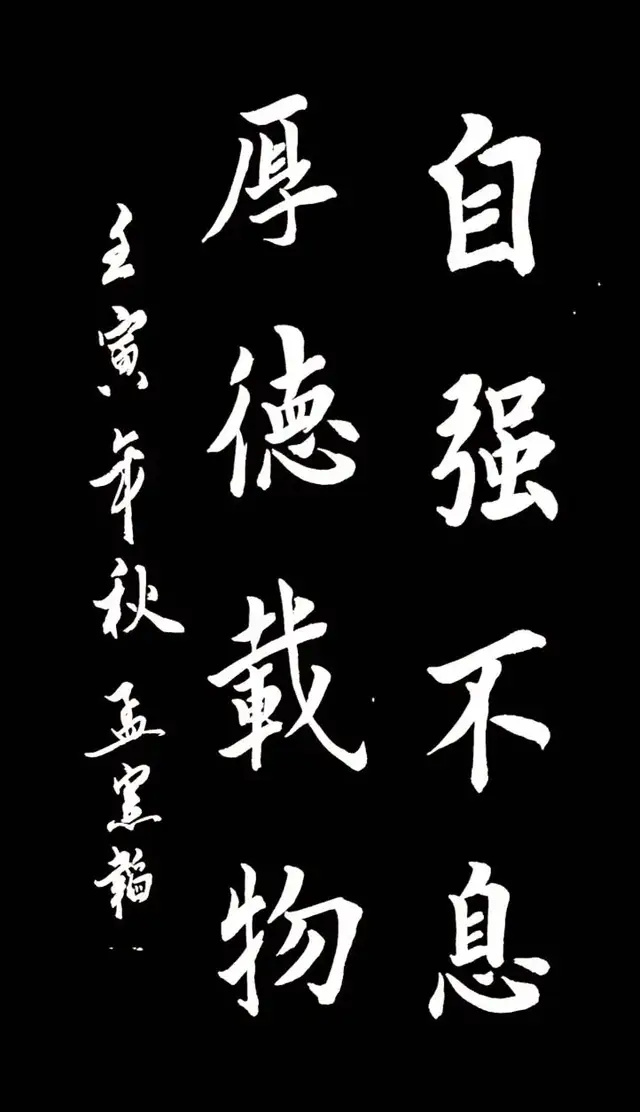 自强不息
厚德載物
壬寅年秋孟窯韜